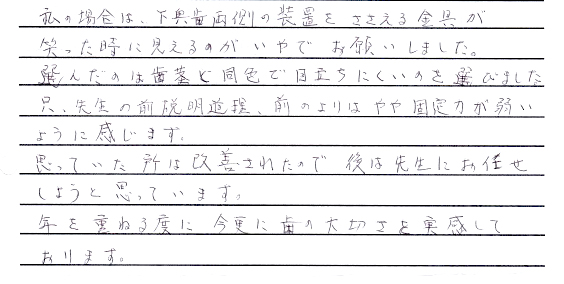 私の場合は、下奥歯両側の装置をささえる金具が
笑った時に見えるのがいやでお願いしました。
選んだのは歯茎と同色で目立ちにくいのを選びました
只、先生の前説明道理、前のよりはやや固定力が弱い
ように感じます。
思っていた所は改善されたので後は先生にお任せ
しようと思っています。
年を重ねる度に今更に歯の大切さを実感して
おります。